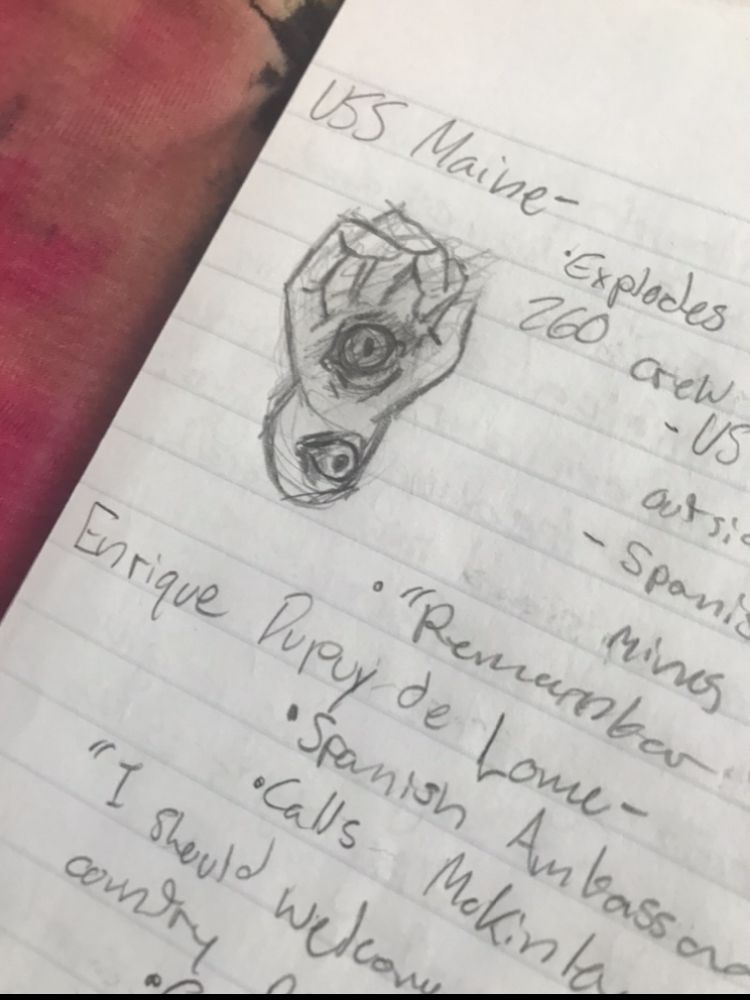 USS Maine-
·Explodes
260 crew
- US
outsi
- Spanis
Mines
· "Remember
Enrique Dupuy de Lome-
·Spanish Ambassa
·Calls McKinl
"I should welcom
country